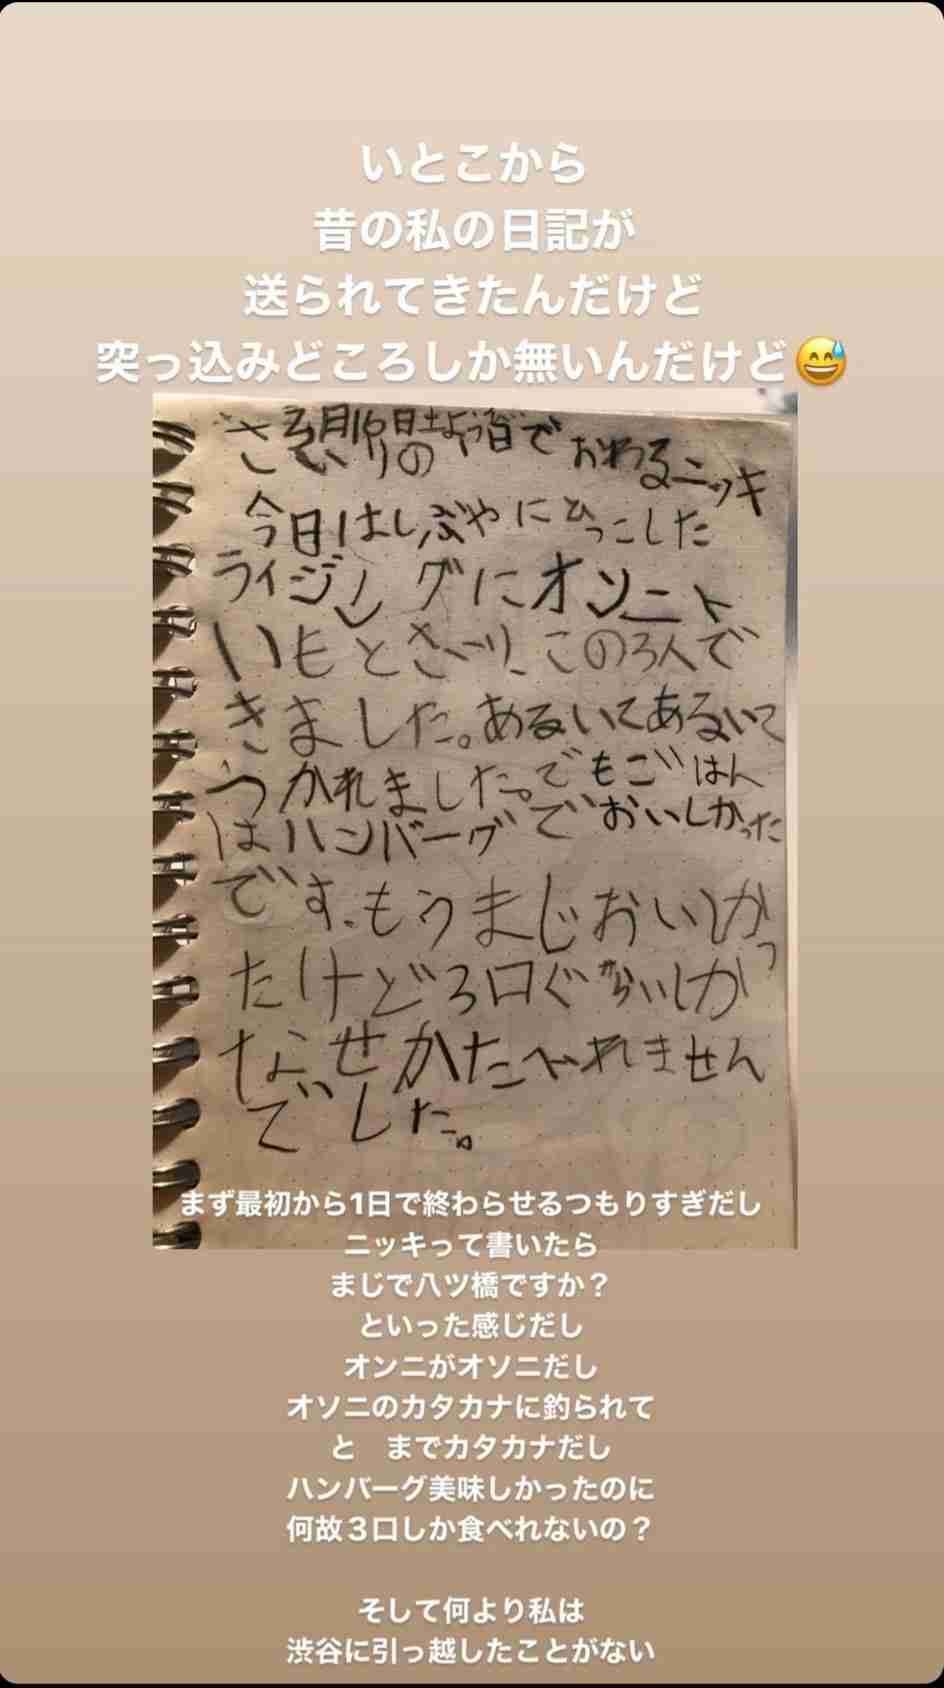 いとこから
昔の私の日記が
送られてきたんだけど
突っ込みどころしか無いんだけど😅
おわるニッキ
今日はしぶやにひっこした
ライジングにオソニト
いもとさいり、この3人で
きました。あるいてあるいて
つかれました。でもごはん
はハンバーグでおいしかった
です、もうまじおいしかっ
たけど3口ぐらいしか
なせかたべれません
でした。
まず最初から1日で終わらせるつもりすぎだし
ニッキって書いたら
まじで八ツ橋ですか？
といった感じだし
オンニがオソニだし
オソニのカタカナに釣られて
と　までカタカナだし
ハンバーグ美味しかったのに
何故３口しか食べれないの？
そして何より私は
渋谷に引っ越したことがない